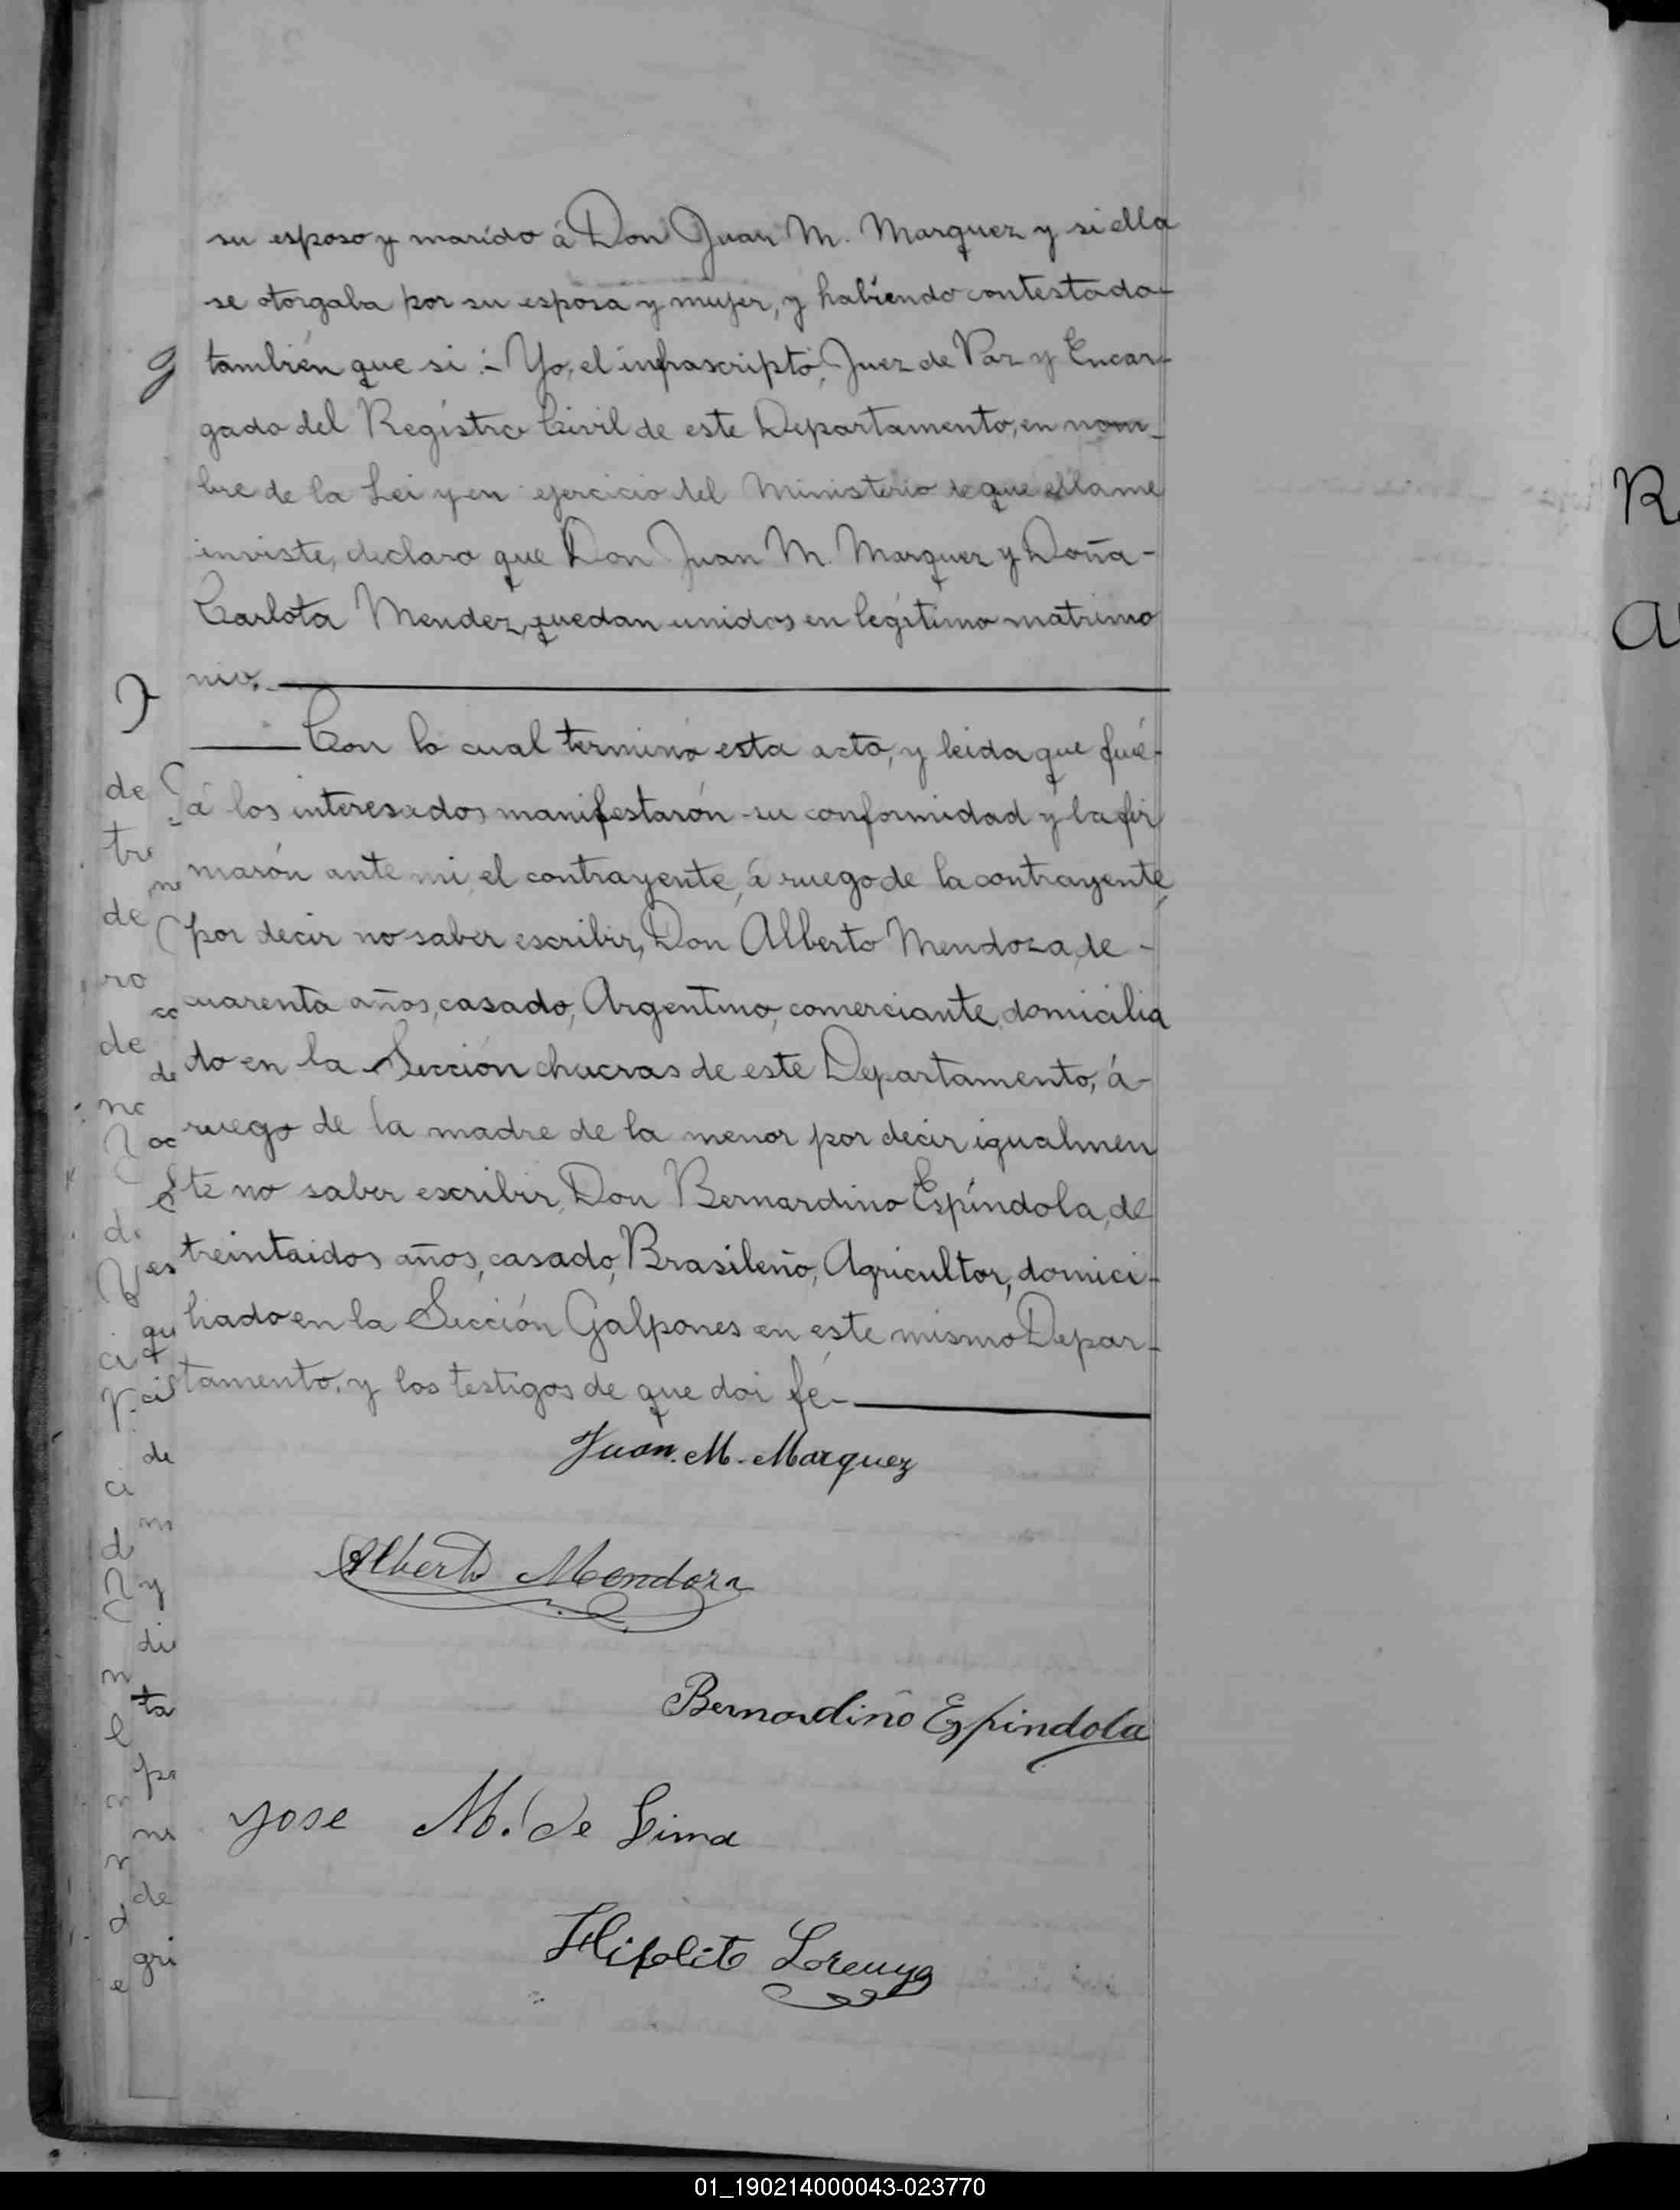 su esposo y marido á Don Juan M. Marquez y si ella
se otorgaba por su esposa y mujer, y habiendo contestado
también que si:- Yo, el infrascripto, Juez de Paz y Encar-
gado del Registro Civil de este Departamento, en nom-
bre de la Lei y en ejercicio del Ministerio de que ella me
inviste, declaro que Don Juan M. Marquez y Doña-
Carlota Mendez, quedan unidos en legítimo matrimo
nio.
Con lo cual terminó esta acto, y leida que fué-
á los interesados manifestarón su conformidad y la fir
marón ante mi, el contrayente, á ruego de la contrayente,
por decir no saber escribir, Don Alberto Mendoza, de-
cuarenta años, casado, Argentino, comerciante, domicilia
do en la Sección chacras de este Departamento, á-
ruego de la madre de la menor por decir igualmen
te no saber escribir, Don Bernardino Espíndola, de
treintaidos años, casado, Brasileño, Agricultor, domici-
liado en la Sección Galpones en este mismo Depar-
tamento, y los testigos de que doi fé-
Juan. M. Marquez
Alberto Mendoza
Bernardino Espindola
Jose M. de Lima
Hipolito Lorenzo
01_190214000043-023770